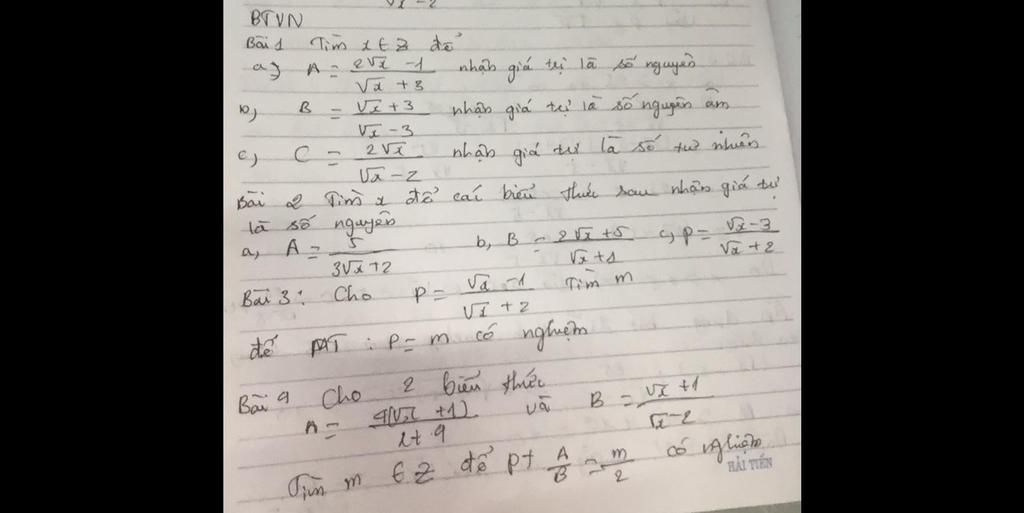 √x - 2
BTVN
Bài 1 Tìm x ∈ Z để
a) A = (2√x - 1)/(√x + 3) nhận giá trị là số nguyên
b, B = (√x + 3)/(√x - 3) nhận giá trị là số nguyên âm
c, C = 2√x/(√x - 2) nhận giá trị là số tự nhiên
Bài 2 Tìm x để các biểu thức sau nhận giá trị
là số nguyên
a, A = 5/(3√x + 2) b, B = (2√x + 5)/(√x + 1) c, P = (√x - 3)/(√x + 2)
Bài 3: Cho P = (√x - 1)/(√x + 2) Tìm m
để PT: P = m có nghiệm
Bài 4 Cho 2 biểu thức
A = 4(√x + 1)/(x + 4) và B = (√x + 1)/(√x - 2)
Tìm m ∈ Z để pt A/B = m/2 có nghiệm
HẢI TIẾN